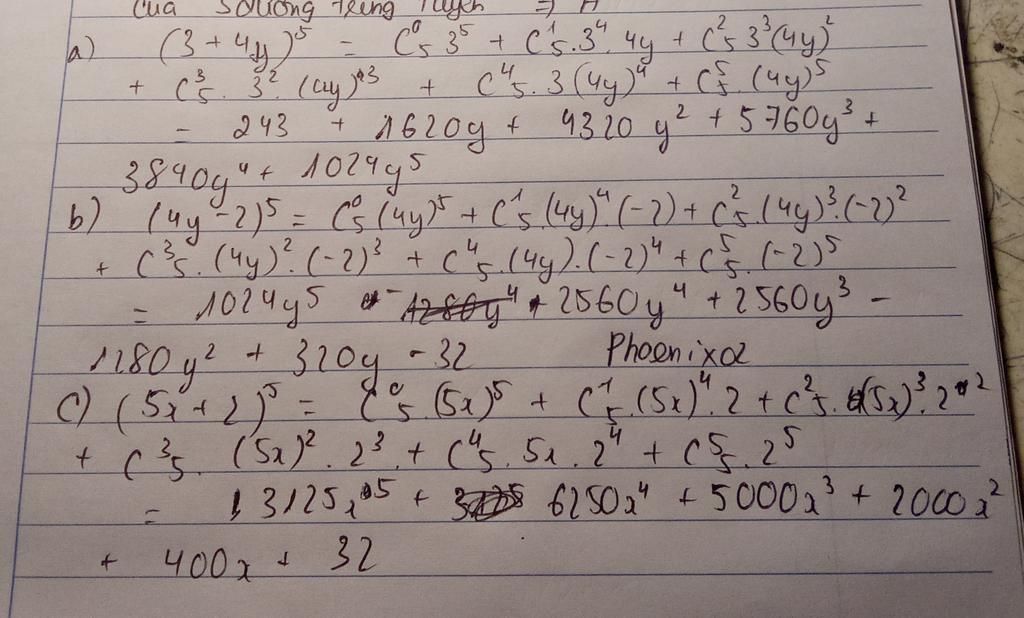 của số lượng trứng
a) (3 + 4y)⁵ = C⁰₅ 3⁵ + C¹₅.3⁴.4y + C²₅ 3³(4y)²
+ C³₅. 3². (4y)³ + C⁴₅.3(4y)⁴ + C⁵₅.(4y)⁵
= 243 + 1620y + 4320 y² + 5760y³ +
3840y⁴ + 1024y⁵
b) (4y - 2)⁵ = C⁰₅(4y)⁵ + C¹₅.(4y)⁴(-2) + C²₅.(4y)³.(-2)²
+ C³₅.(4y)².(-2)³ + C⁴₅.(4y).(-2)⁴ + C⁵₅.(-2)⁵
= 1024y⁵ - 2560y⁴ + 2560y³ -
1280y² + 320y - 32 Phoenixaz
c) (5x + 2)⁵ = C⁰₅.(5x)⁵ + C¹₅.(5x)⁴.2 + C²₅.(5x)³.2²
+ C³₅. (5x)². 2³ + C⁴₅. 5x. 2⁴ + C⁵₅. 2⁵
= 3125x⁵ + 6250x⁴ + 5000x³ + 2000x²
+ 400x + 32